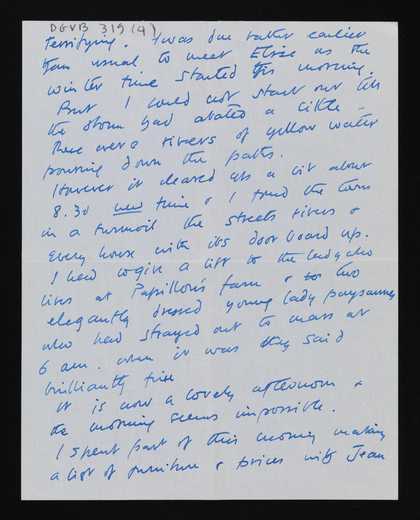 DGVB 319 (4)
terrifying. I was due rather earlier
than usual to meet Elsie as the
winter time started this morning.
But I could not start over till
the storm had abated a little –
there were rivers of yellow water
pouring down the paths.
However it cleared up a bit about
8.30 new time & I found the town
in a turmoil the streets rivers &
every house with its door board up.
I had to give a lift to the lady who
lives at Papillon's farm & to two
elegantly dressed young lady paysannes
who had strayed out to mass at
6 am. when it was they said
brilliantly fine
It is now a lovely afternoon &
the morning seems impossible.
I spent part of this morning making
a list of furniture & prices with Jean